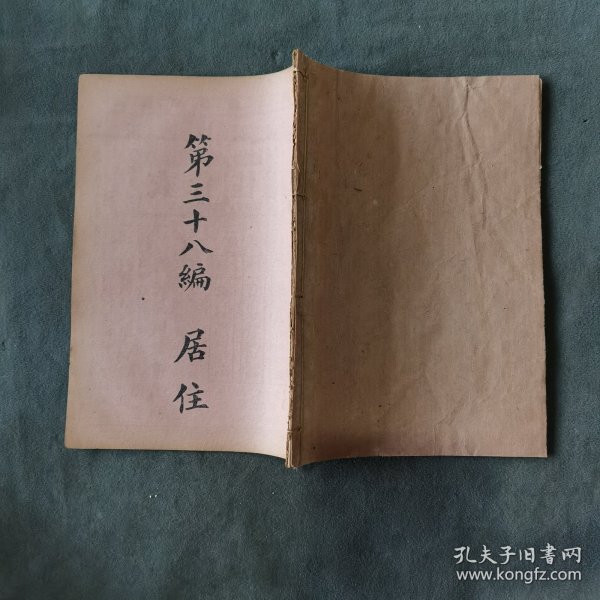 第三十八編 居住
孔夫子旧书网
www.kongfz.com